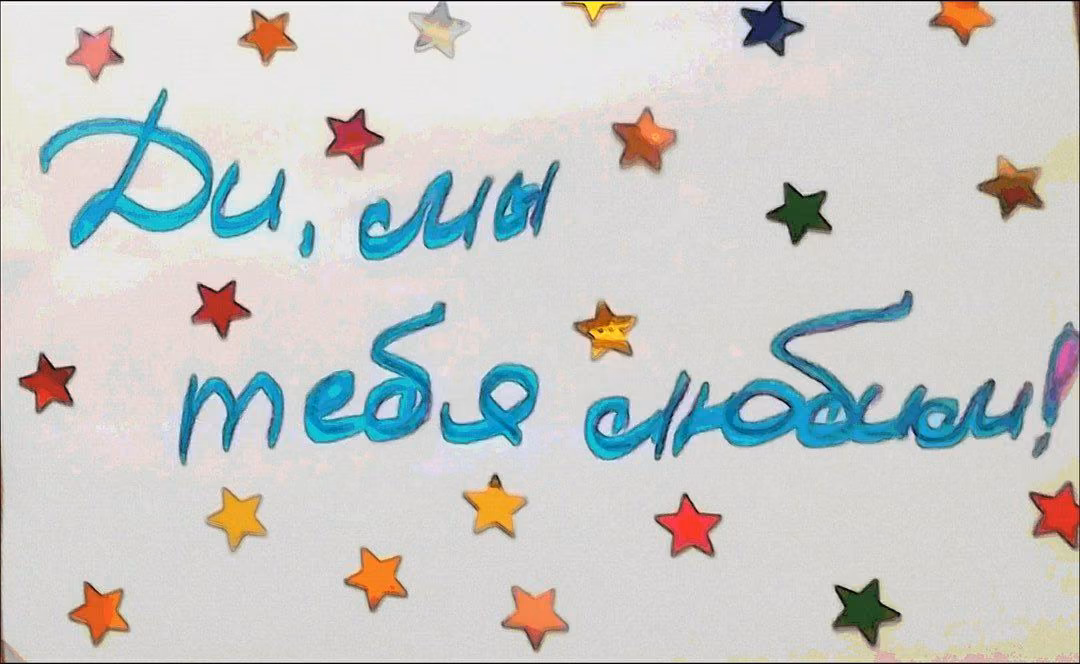 Ди, мы
тебя любим!